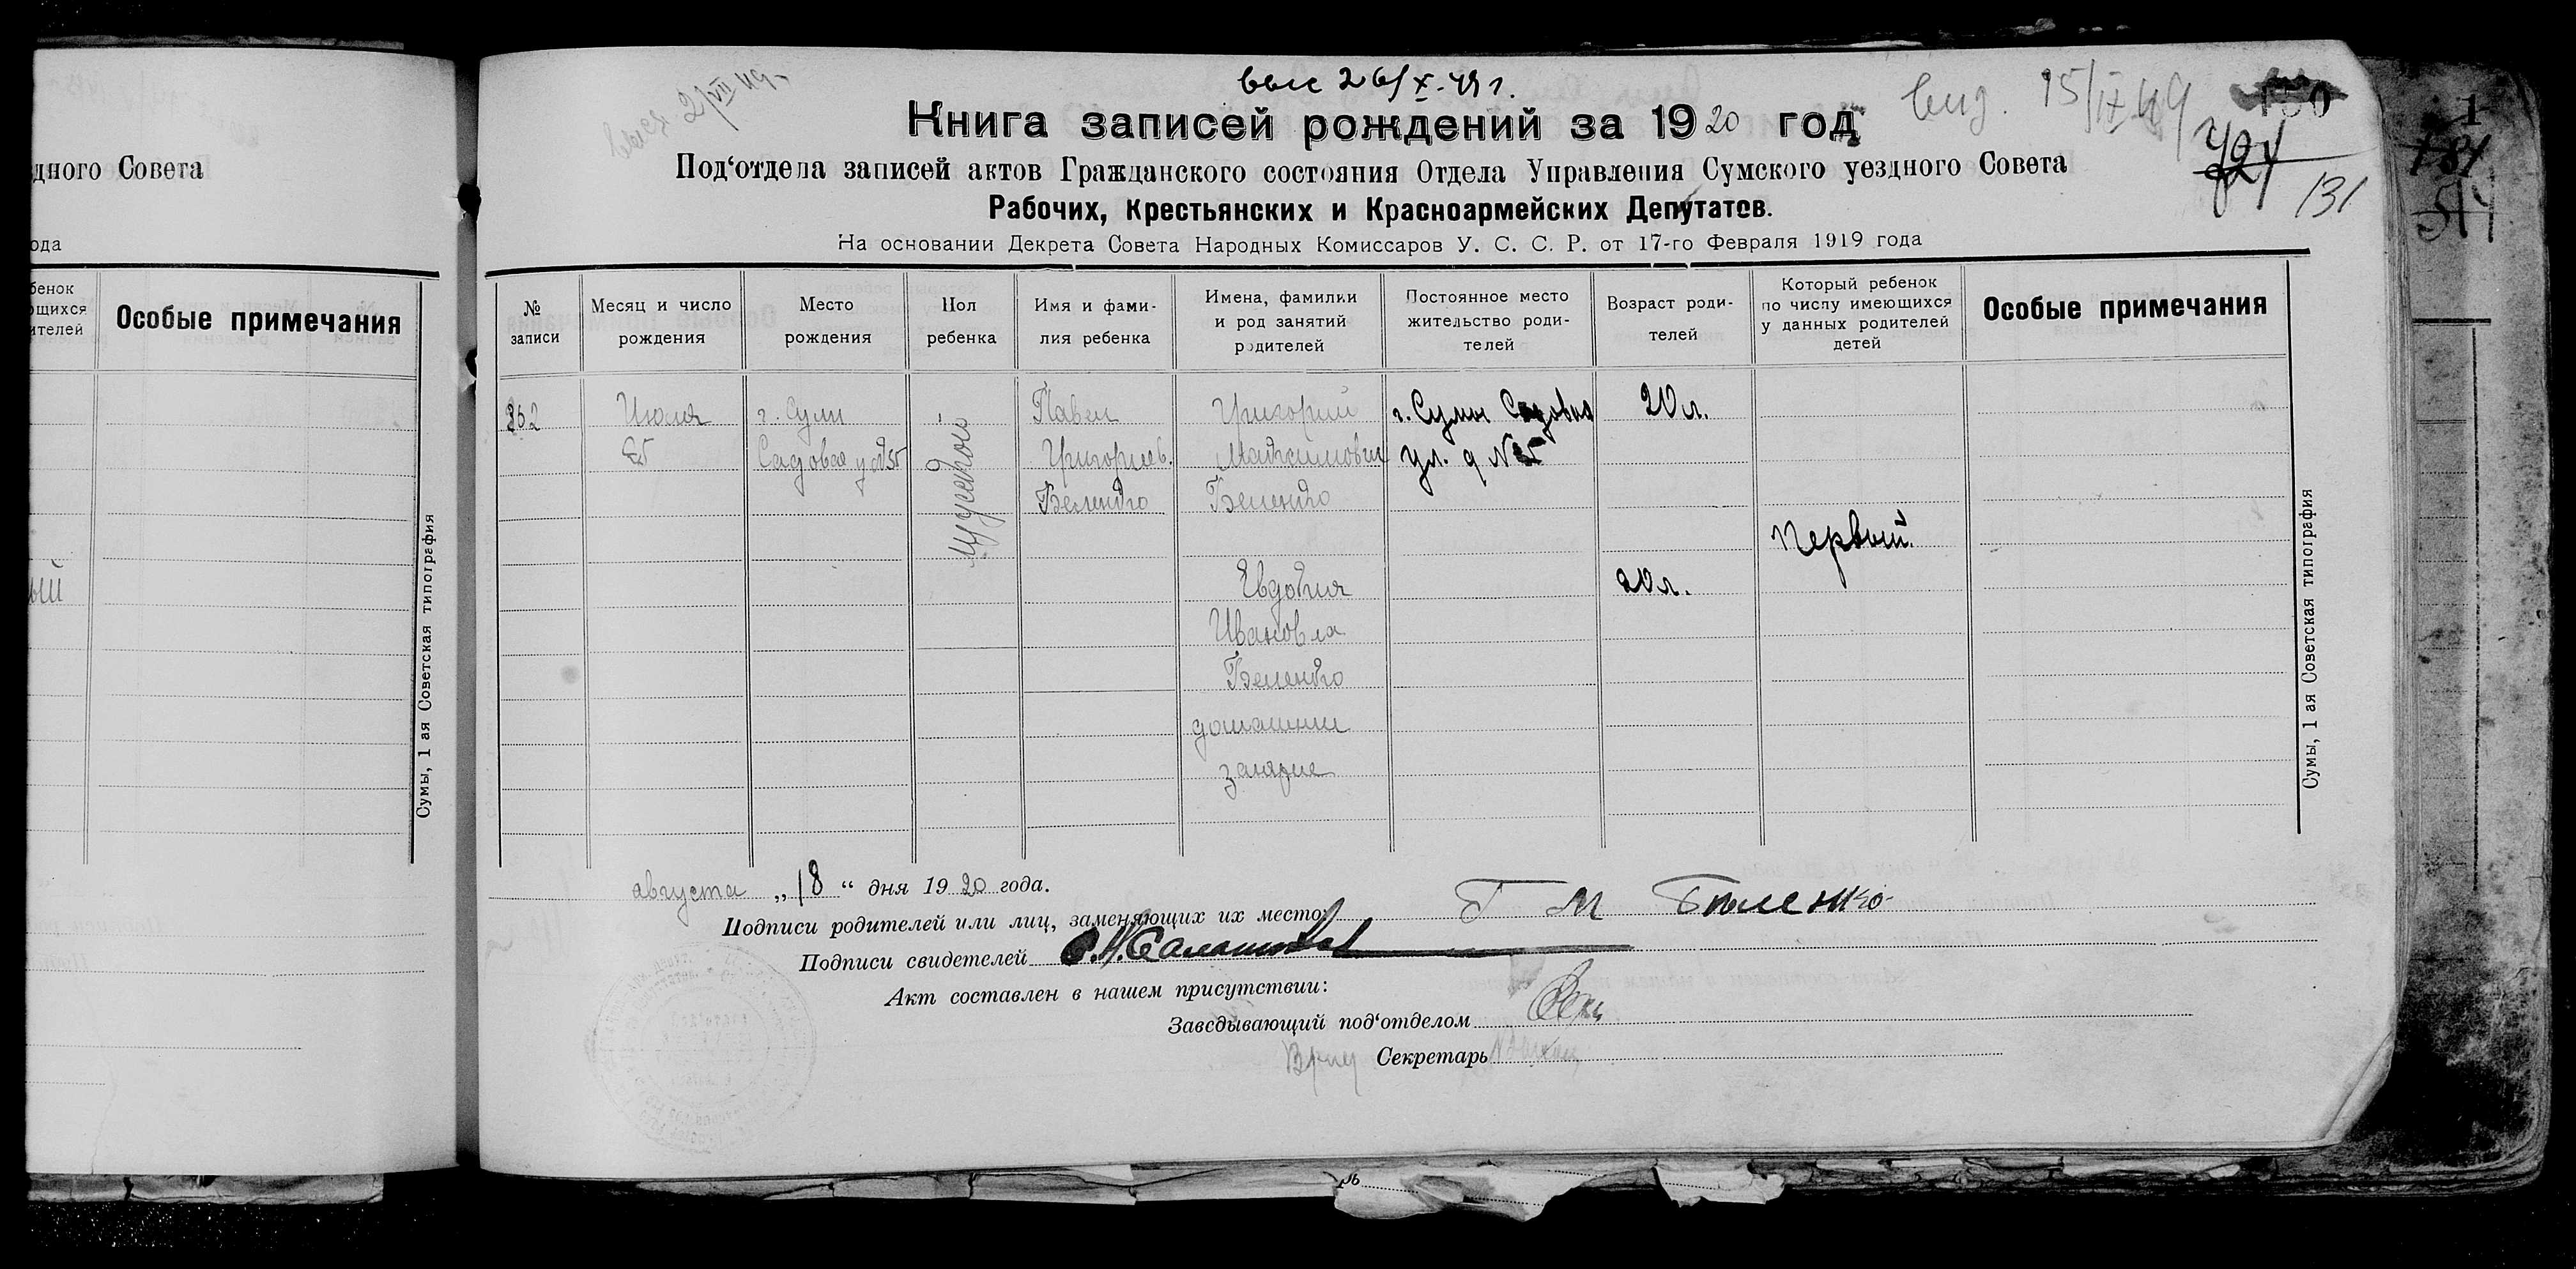 дного Совета
ода
бенок
ющихся
ителей
Особые примечания
ый
Сумы, 1 ая Советская типография
выс 26/X-49 г.
выд. 15/IX 49
131
Книга записей рождений за 1920 год
Под‘отдела записей актов Гражданского состояния Отдела Управления Сумского уездного Совета
Рабочих, Крестьянских и Красноармейских Депутатов.
На основании Декрета Совета Народных Комиссаров У. С. С. Р. от 17-го Февраля 1919 года
№ записи
Месяц и число рождения
Место рождения
Пол ребенка
Имя и фами-
лия ребенка
Имена, фамилии
и род занятий
родителей
Постоянное место
жительство роди-
телей
Возраст роди-
телей
Который ребенок
по числу имеющихся
у данных родителей
детей
Особые примечания
362
Июля
г. Сумы
Садовая
мужского
Павел
Григорьев.
Беленко
Григорий
Максимович
Беленко
Евдокия
Ивановна
Беленко
домашнии
занятие
г. Сумы Садовая
ул. д №35
20 л.
20 л.
Первый.
Сумы, 1 ая Советская типография
августа „18“ дня 1920 года.
Подписи родителей или лиц, заменяющих их место: Г М Беленко
Подписи свидетелей
Акт составлен в нашем присутствии:
Заведывающий под‘отделом
Врид Секретарь